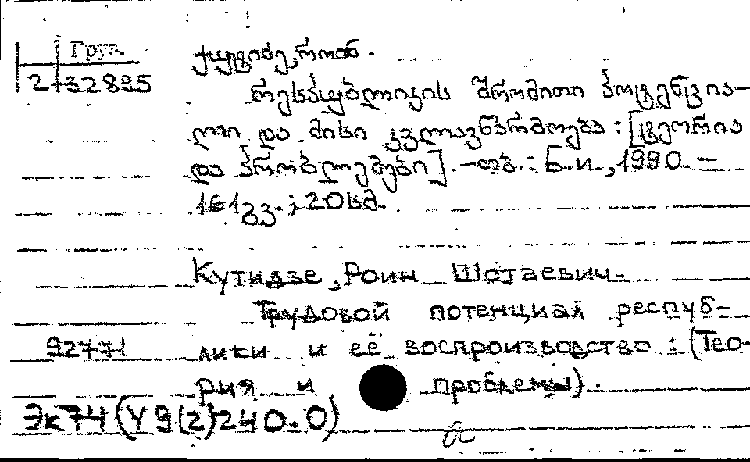 Груз.
2-32895
ქუტიძე, როინ.
რესპუბლიკის შრომითი პოტენცია-
ლი და მისი კვლავწარმოება : [თეორია
და პრობლემები]. - თბ. : Б.и., 1990. -
161 გვ. ; 20 სმ.
Кутидзе, Роин Шотаевич.
Трудовой потенциал респуб-
92771 лики и её воспроизводство : (Тео-
рия и проблемы).
Эк74(У9(2)240.0)